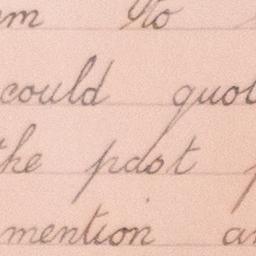 to
could quot
the past
mention